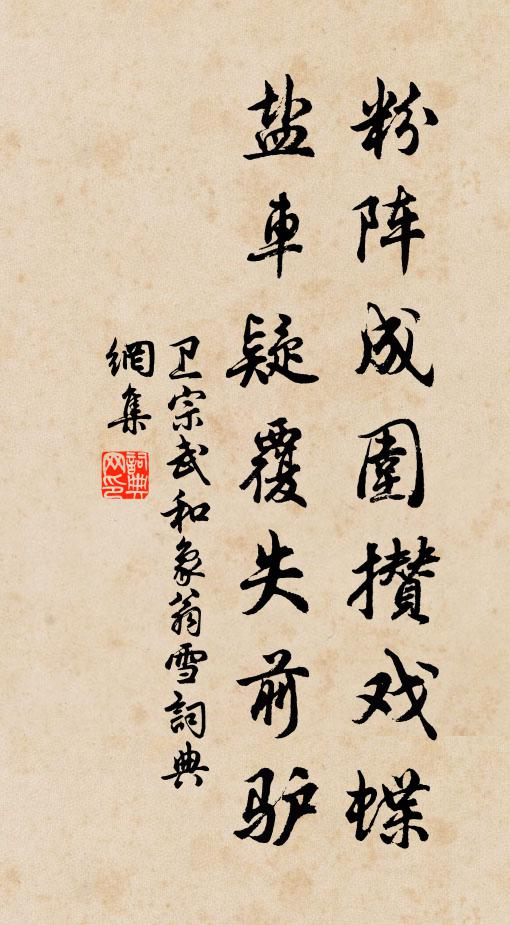 粉阵成圍攢戏蝶
盐車疑覆失前驴
卫宗武和象翁雪詞典
網集
詞典网印